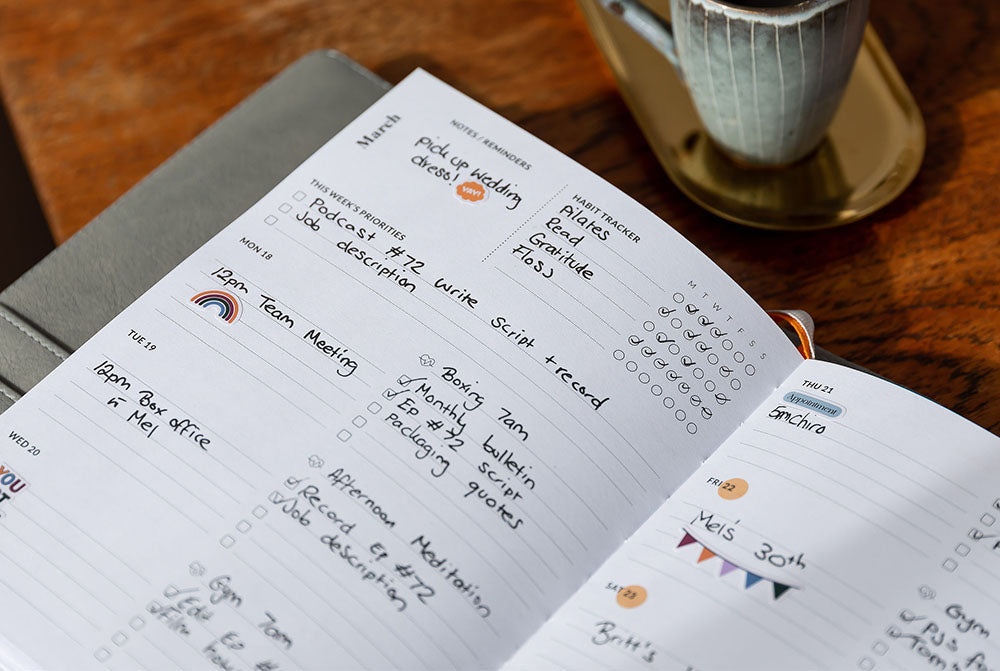 March
NOTES / REMINDERS
Pick up wedding
dress!
YAY!
HABIT TRACKER
Pilates
Read
Gratitude
Floss
M T W T F S S
THIS WEEK'S PRIORITIES
Podcast #72 write script + record
Job description
MON 18
12pm Team Meeting
Boxing 7am
Monthly bulletin
Ep #72 script
Packaging quotes
TUE 19
12pm Box office
Mel
Afternoon Meditation
Record Ep #72
Job description
WED 20
YOU
Gym 7am
Edit Ep #
Film
THU 21
Appointment
Chiro
FRI 22
Mel's 30th
SAT 23
Britt's
Gym
PJ's